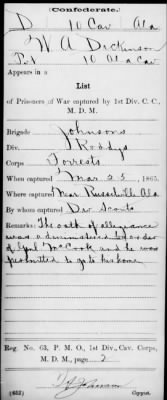 (Confederate.)
D 10 Cav Ala
W. A. Dickinson
Pvt 10 Ala Cav.
Appears in a
List
of Prisoners of War captured by 1st Div. C. C.,
M. D. M.
Brigade Johnsons
Div. Roddys
Corps Forrests
When captured Mar 25, 1865.
Where captured Near Russellville Ala
By whom captured Div Scouts
Remarks: The oath of allegiance
was administered by order
of Genl McCook and he was
permitted to go to his home.
Reg. No. 63, P. M. O., 1st Div., Cav. Corps,
M. D. M., page 2
(652) Copyist.